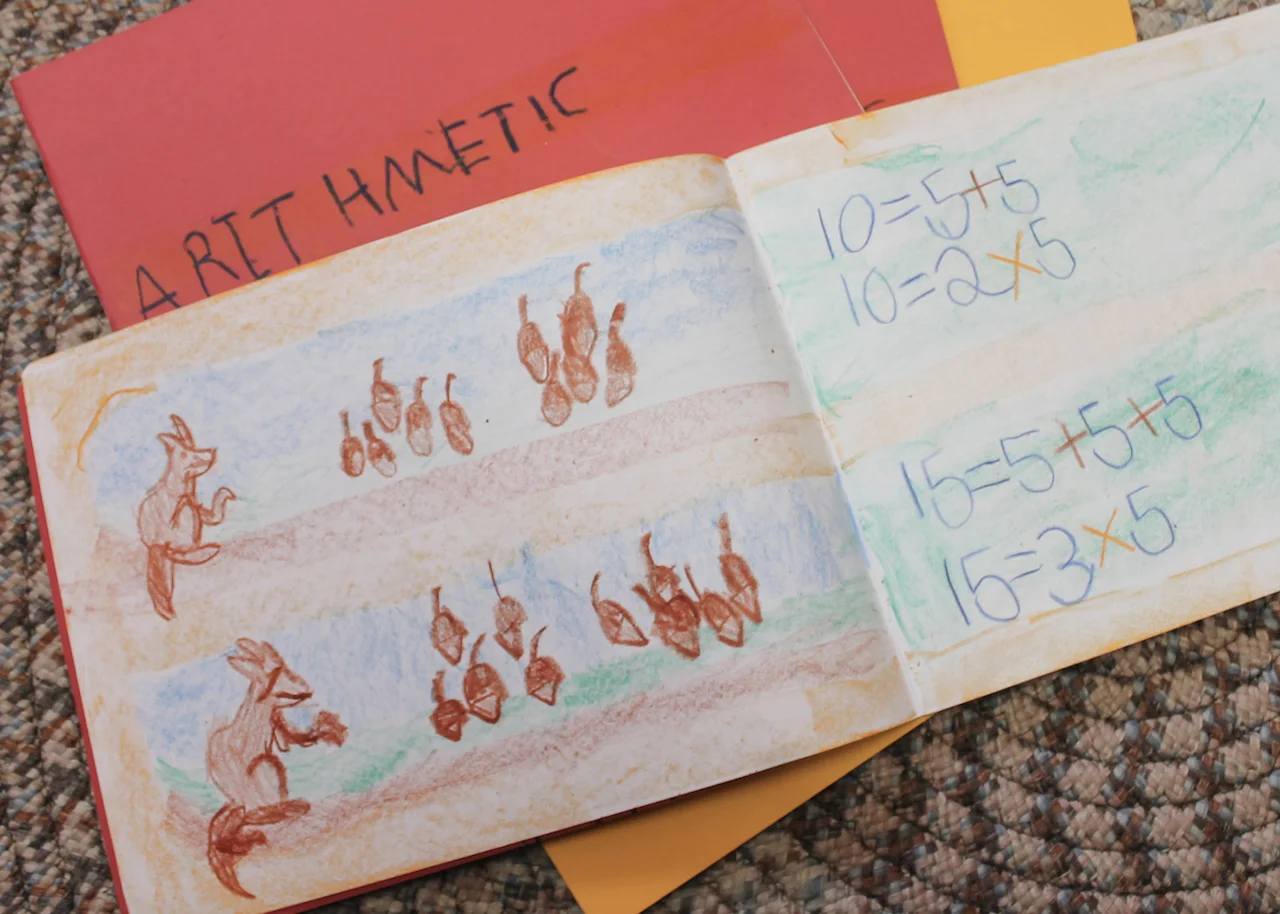 ARITHMETIC
10=5+5
10=2×5
15=5+5+5
15=3×5